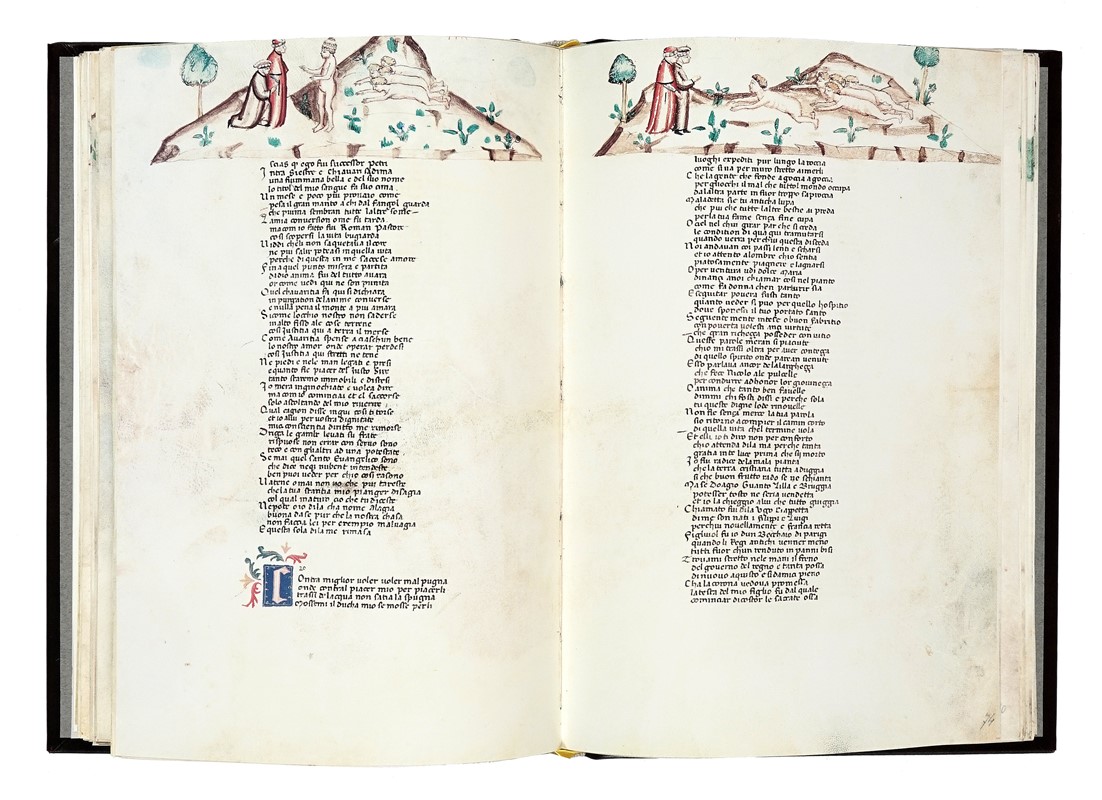 scias q ego fui successor petri
Intra Siestre e Chiavari sadima
una fiummana bella e del suo nome
lo titol del mio sangue fa sua cima
Un mese e poco piu provaio come
pesa il gran manto a chi dal fango guarda
che piuma sembran tutte laltre some
La mia conversion ome fu tarda
ma como fatto fui Roman Pastore
cosi scopersi la vita bugiarda
Viddi cheli non saquetava il core
ne piu salir poteasi in quella vita
perche di questa in me saccese amore
Fin a quel punto misera e partita
da dio anima fui del tutto avara
or come vedi qui ne son punita
Quel chavaritia fa qui si dichiara
in purgation delanime converse
e nulla pena il monte a piu amara
Si come locchio nostro non saderse
in alto fisso ale cose terrene
cosi Justitia qui a terra il merse
Come Avaritia spense a ciaschun bene
lo nostro amor onde operar perdesi
cosi Justitia qui stretti ne tene
Ne piedi e nele man legati e presi
e quanto fie piacer del Justo Sire
tanto staremo immobili e distesi
Io mera inginochiato e volea dire
ma com io cominciai et el saccorse
solo ascoltando del mio riverire
Qual cagion disse ingiu cosi ti torse
et io allui per vostra dignitate
mia conscientia diritto me rimorse
Driza le gambe levati su frate
rispuose non errar con servo sono
teco e con glialtri ad una potestate
Se mai quel santo Evangelico sono
che dice neqz nubent intendeste
ben puoi veder per chio cosi rasono
Vatene omai non vo che piu tareste
che la tua stantia mio pianger disagia
col qual maturo cio che tu diceste
Nepote oio di la cha nome Alagia
buona da se pur che la nostra chasa
non faccia lei per exempio malvagia
E questa sola di la me rimasa
20
COntra miglior voler voler mal pugna
onde contral piacer mio per piacerli
trassi delacqua non satia la spugna
Mossemi il ducha mio se mosse perli
luoghi expediti pur lungo la roccia
come si va per muro stretto aimerli
Che la gente che fonde a gocia a goccia
per gliocchi il mal che tuttol mondo occupa
dalaltra parte in fuor troppo saproccia
Maladetta sie tu anticha lupa
che piu che tutte laltre bestie ai preda
per la tua fame senza fine cupa
O ciel nel chui girar par che si creda
le condition di qua giu tramutarsi
quando verra per chui questa disceda
Noi andavan coi passi lenti e scharsi
et io attento alombre chio sentia
piatosamente piagnere e lagnarsi
O per ventura udi dolce Maria
dinanzi anoi chiamar cosi nel pianto
come fa donna chen parturir sia
E seguitar povera fusti tanto
quanto veder si puo per quello hospitio
dove sponesti il tuo portato santo
Seguente mente intese o buon fabritio
con poverta volesti anzi virtute
che gran richezza posseder con vitio
Queste parole meran si piaciute
chio mi trassi oltra per aver conteza
di quello spirito onde parean venute
Esso parlava ancor dela largheza
che fece Nicolo ale pulcelle
per condurre ad honor lor giovineza
O anima che tanto ben favelle
dimmi chi fosti dissi e perche sola
tu queste digne lode rinovelle
Non fie senza merce la tua parola
sio ritorno a compier il camin corto
di quella vita chel termine vola
Et elli io ti diro non per conforto
chio attenda di la ma perche tanta
gratia inte luce prima che sij morto
Io fui radice dela mala pianta
che la terra cristiana tutta aduggia
si che buon frutto rado se ne schianta
Ma se Doagio Guanto Lilla e Bruggia
potesser tosto ne seria vendetta
et io la chieggio alui che tutto guiggia
Chiamato fui di la Ugo Ciappetta
di me son nati i filippi e luigi
per chui novellamente e francia retta
Figliuol fu io dun Becchaio di parigi
quando li Regi antichi venner meno
tutti fuor chun renduto in panni bisi
Trovami stretto nele mani il freno
del governo del regno e tanta possa
di nuovo aquisto e si damici pieno
Cha la corona vedova promessa
la testa del mio figlio fu dal quale
cominciar di costor le sacrate ossa
74